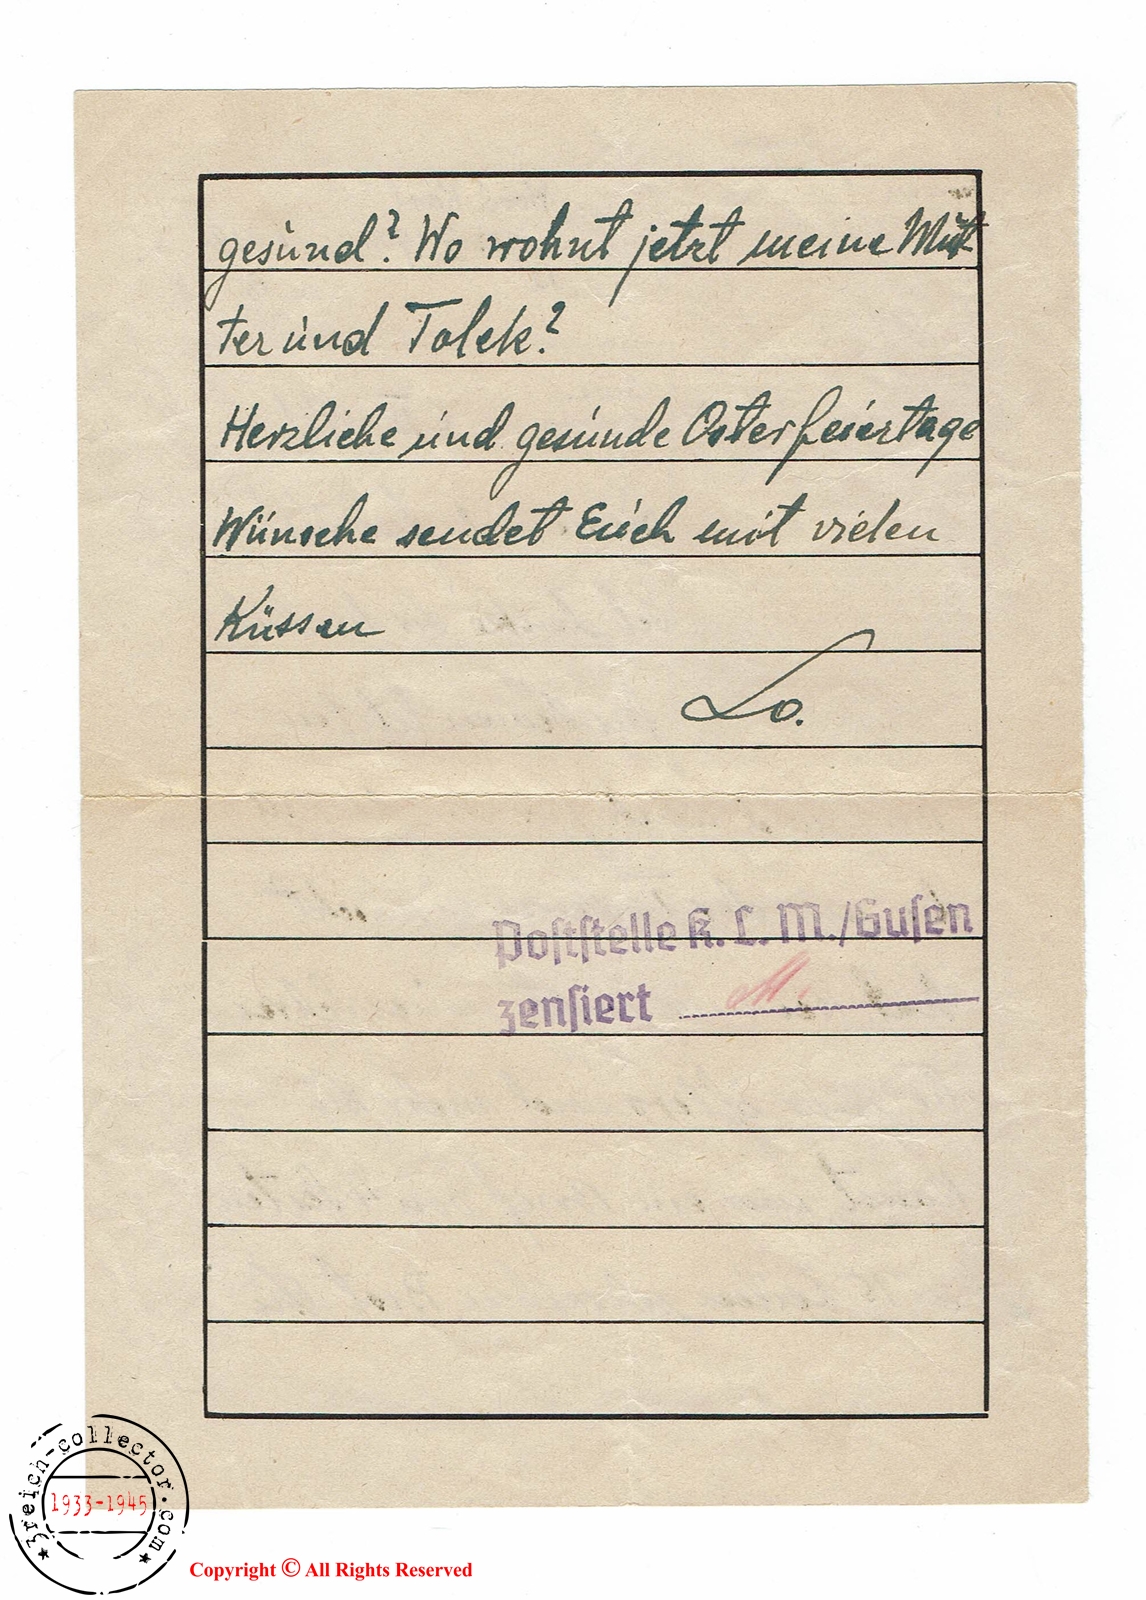 gesund? Wo wohnt jetzt meine Mut-
ter und Tolek?
Herzliche und gesunde Osterfeiertage
Wünsche sendet Euch mit vielen
Küssen
Lo.
Poststelle K. L. M./Gusen
zensiert
3reich-collector.com
1933-1945
Copyright © All Rights Reserved